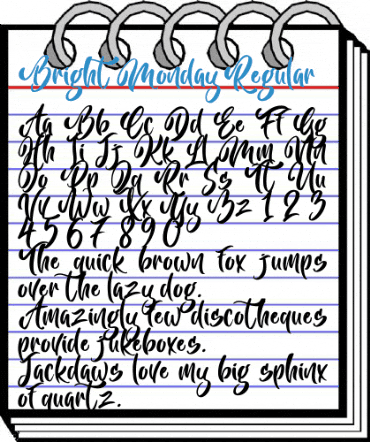 Bright Monday Regular
Aa Bb Cc Dd Ee Ff Gg
Hh Ii Jj Kk Ll Mm Nn
Oo Pp Qq Rr Ss Tt Uu
Vv Ww Xx Yy Zz 1 2 3
4 5 6 7 8 9 0
The quick brown fox jumps
over the lazy dog.
Amazingly few discotheques
provide jukeboxes.
Jackdaws love my big sphinx
of quartz.